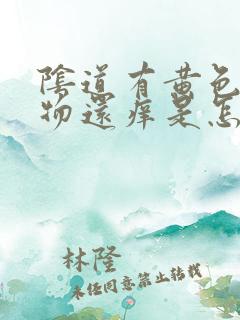 陰道有黃色
物還痒是怎
林隆
未经同意禁止转载